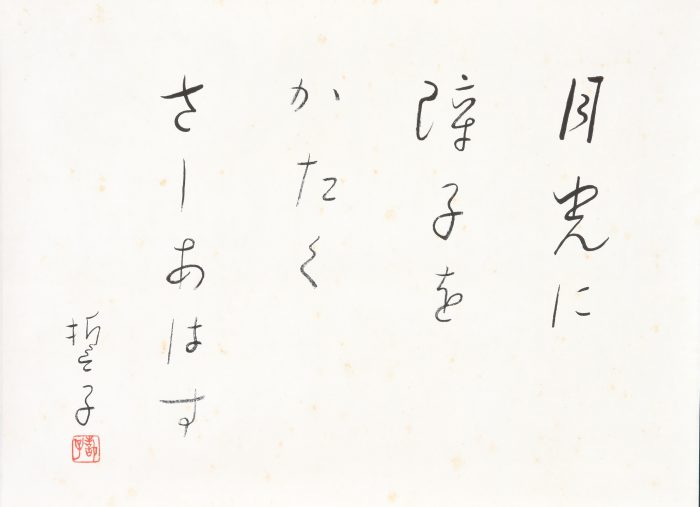 月光に
障子を
かたく
さしあはす
誓子